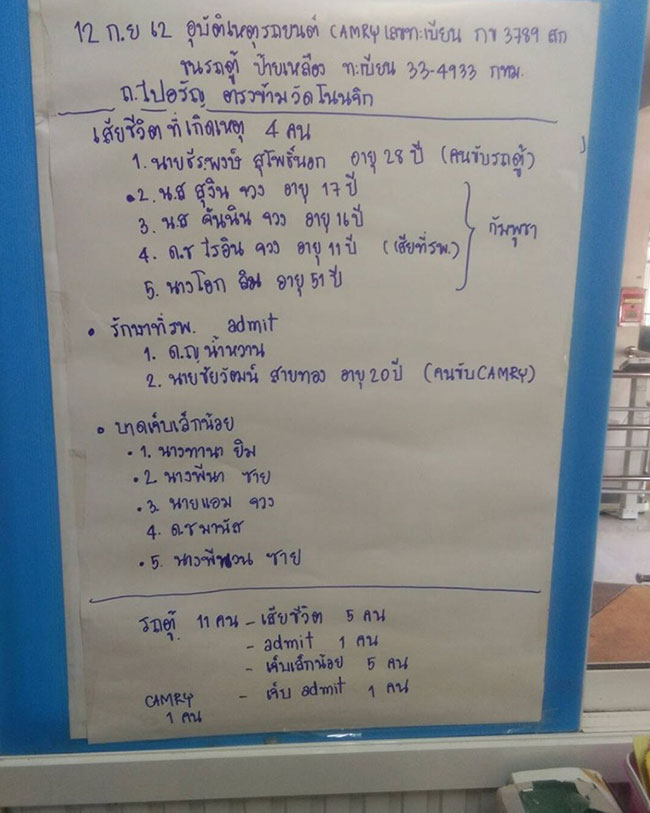 12 ก.ย 62 อุบัติเหตุรถยนต์ CAMRY เลขทะเบียน กข 3789 สก
ชนรถตู้ ป้ายเหลือง ทะเบียน 33-4933 กทม.
ถ.ไปอรัญ ตรงข้ามวัดโนนจิก
เสียชีวิตที่เกิดเหตุ 4 คน
1. นายธีระพงษ์ สุโพธิ์นอก อายุ 28 ปี (คนขับรถตู้)
2. น.ส สุจิน จวง อายุ 17 ปี
3. น.ส จันนิน จวง อายุ 16 ปี
4. ด.ช ไรอิน จวง อายุ 11 ปี (เสียที่รพ.)
5. นางโอก ลิม อายุ 51 ปี
กัมพูชา
• รักษาที่รพ. admit
1. ด.ญ น้ำหวาน
2. นายชัยวัฒน์ สายทอง อายุ 20 ปี (คนขับ CAMRY)
• บาดเจ็บเล็กน้อย
• 1. นางทานา ยิม
• 2. นางพีนา ซาย
• 3. นายแอม จวง
4. ด.ช มานัส
• 5. นางพีนวน ซาย
รถตู้ 11 คน - เสียชีวิต 5 คน
- admit 1 คน
- เจ็บเล็กน้อย 5 คน
CAMRY - เจ็บ admit 1 คน
1 คน